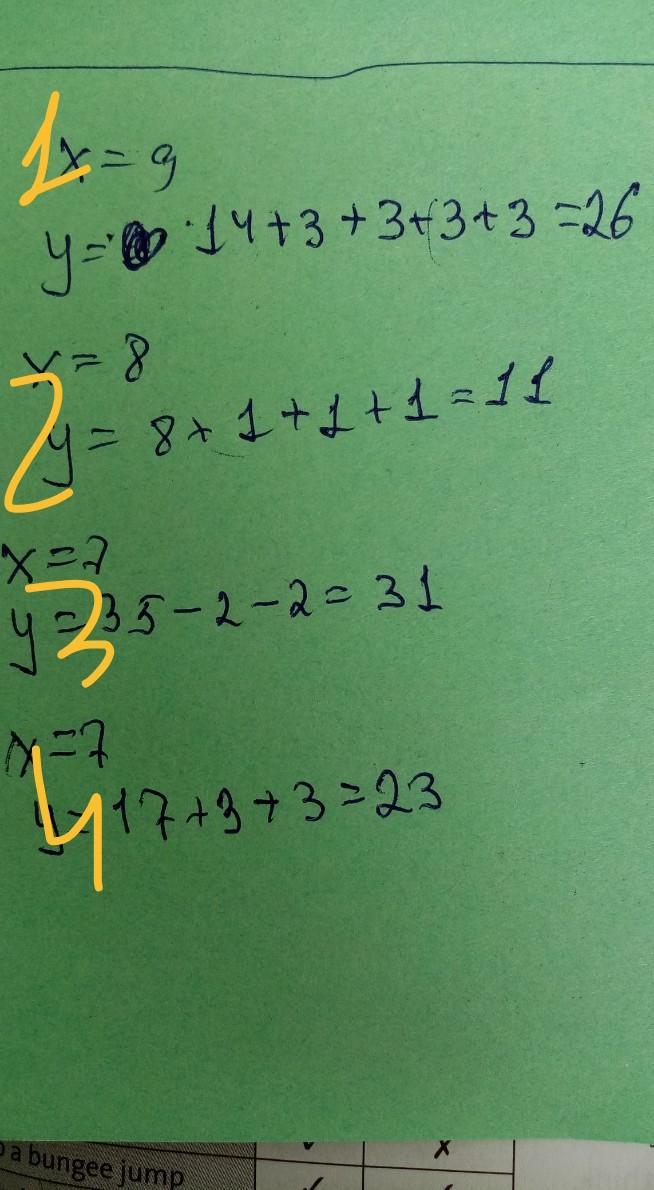 1
x = 9
y = 14 + 3 + 3 + 3 + 3 = 26
x = 8
2
y = 8 + 1 + 1 + 1 = 11
x = 7
3
y = 35 - 2 - 2 = 31
x = 7
4
y = 17 + 3 + 3 = 23
a bungee jump